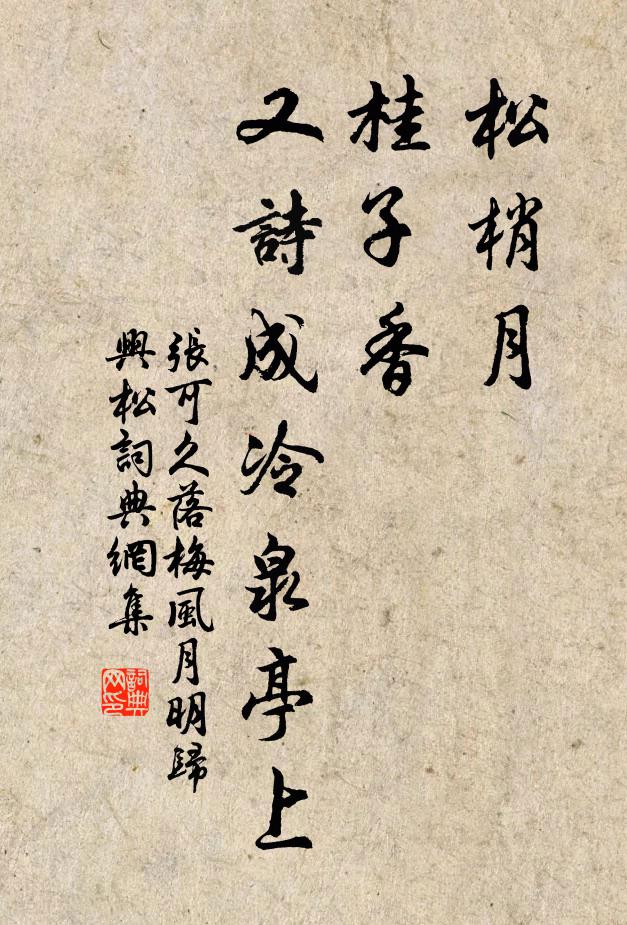 松梢月
桂子香
又詩成冷泉亭上
張可久落梅風月明歸
興松詞典網集
詞典网印